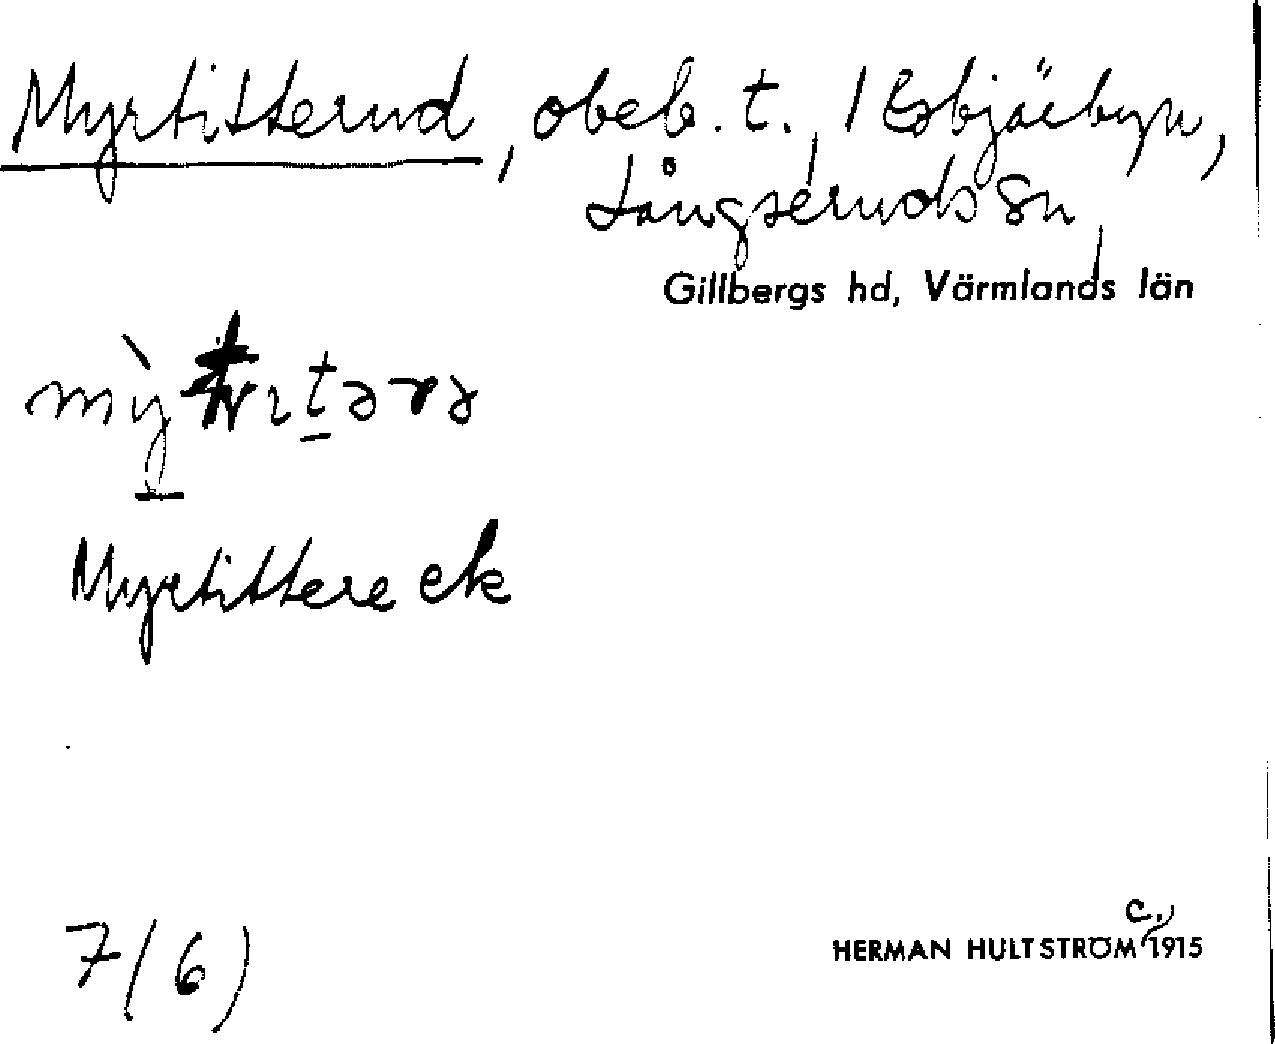 Myrtitterud, obeb. t., 1 Esbjörbyn,
Långseruds Sn,
Gillbergs hd, Värmlands län
Myrtittere ek
7(6)
c.
HERMAN HULTSTRÖM 1915